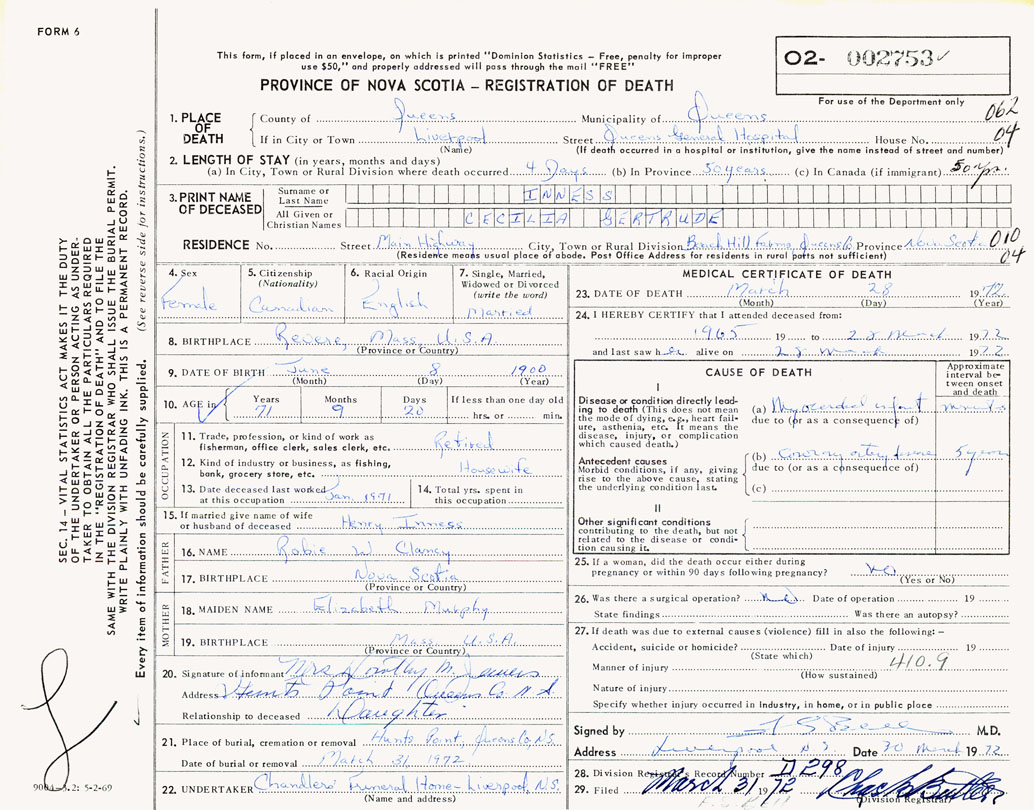 FORM 6
This form, if placed in an envelope, on which is printed "Dominion Statistics – Free, penalty for improper
use $50," and properly addressed will pass through the mail "FREE"
O2- 002753
PROVINCE OF NOVA SCOTIA – REGISTRATION OF DEATH
For use of the Department only
062
04
1. PLACE OF DEATH
County of Queens Municipality of Queens
If in City or Town Liverpool Street Queens General Hospital House No.
(Name) (If death occurred in a hospital or institution, give the name instead of street and number)
2. LENGTH OF STAY (in years, months and days)
(a) In City, Town or Rural Division where death occurred 4 Days (b) In Province 50 years (c) In Canada (if immigrant) 50 yrs.
3. PRINT NAME OF DECEASED
Surname or Last Name INNESS
All Given or Christian Names CECILIA GERTRUDE
RESIDENCE No. Street Main Highway City, Town or Rural Division Beach Hill Farms, Queens Co Province Nova Scotia 010
(Residence means usual place of abode. Post Office Address for residents in rural parts not sufficient) 04
4. Sex
Female
5. Citizenship
(Nationality)
Canadian
6. Racial Origin
English
7. Single, Married,
Widowed or Divorced
(write the word)
Married
8. BIRTHPLACE Revere, Mass. U.S.A.
(Province or Country)
9. DATE OF BIRTH June 8 1900
(Month) (Day) (Year)
10. AGE in Years Months Days If less than one day old
71 9 20 hrs. or min.
OCCUPATION
11. Trade, profession, or kind of work as
fisherman, office clerk, sales clerk, etc. Retired
12. Kind of industry or business, as fishing,
bank, grocery store, etc. Housewife
13. Date deceased last worked
at this occupation Jan. 1971
14. Total yrs. spent in
this occupation
15. If married give name of wife
or husband of deceased Henry Inness
FATHER
16. NAME Robie W Clancy
17. BIRTHPLACE Nova Scotia
(Province or Country)
MOTHER
18. MAIDEN NAME Elizabeth Murphy
19. BIRTHPLACE Mass. U.S.A.
(Province or Country)
20. Signature of informant Mrs Dorothy M.
Address Hunts Point Queens Co. N.S
Relationship to deceased Daughter
21. Place of burial, cremation or removal Hunts Point, Queens Co, N.S.
Date of burial or removal March 31 1972
22. UNDERTAKER Chandlers' Funeral Home - Liverpool N.S.
(Name and address)
MEDICAL CERTIFICATE OF DEATH
23. DATE OF DEATH March 28 1972
(Month) (Day) (Year)
24. I HEREBY CERTIFY that I attended deceased from:
1965 19 to 28 March 1972
and last saw her alive on 28 March 1972
CAUSE OF DEATH
Approximate
interval be-
tween onset
and death
I
Disease or condition directly lead-
ing to death (This does not mean
the mode of dying, e.g., heart fail-
ure, asthenia, etc. It means the
disease, injury, or complication
which caused death.)
(a) Myocardial infarct minutes
due to (or as a consequence of)
Antecedent causes
Morbid conditions, if any, giving
rise to the above cause, stating
the underlying condition last.
(b) Coronary artery 5 years
due to (or as a consequence of)
(c)
II
Other significant conditions
contributing to the death, but not
related to the disease or condi-
tion causing it.
25. If a woman, did the death occur either during
pregnancy or within 90 days following pregnancy? No
(Yes or No)
26. Was there a surgical operation? No Date of operation 19
State findings Was there an autopsy?
27. If death was due to external causes (violence) fill in also the following: –
Accident, suicide or homicide? Date of injury 19
(State which)
Manner of injury 410.9
(How sustained)
Nature of injury
Specify whether injury occurred in Industry, in home, or in public place
Signed by M.D.
Address Liverpool N.S. Date 30 March 1972
28. Division Registrar's Record Number D 298
29. Filed March 31 1972 Chas K Butler
(Division Registrar)
SEC. 14 – VITAL STATISTICS ACT MAKES IT THE DUTY
OF THE UNDERTAKER OR PERSON ACTING AS UNDER-
TAKER TO OBTAIN ALL THE PARTICULARS REQUIRED
IN THE "REGISTRATION OF DEATH" AND TO FILE THE
SAME WITH THE DIVISION REGISTRAR WHO SHALL ISSUE THE BURIAL PERMIT.
WRITE PLAINLY WITH UNFADING INK. THIS IS A PERMANENT RECORD.
Every item of information should be carefully supplied. (See reverse side for instructions.)
5-2-69